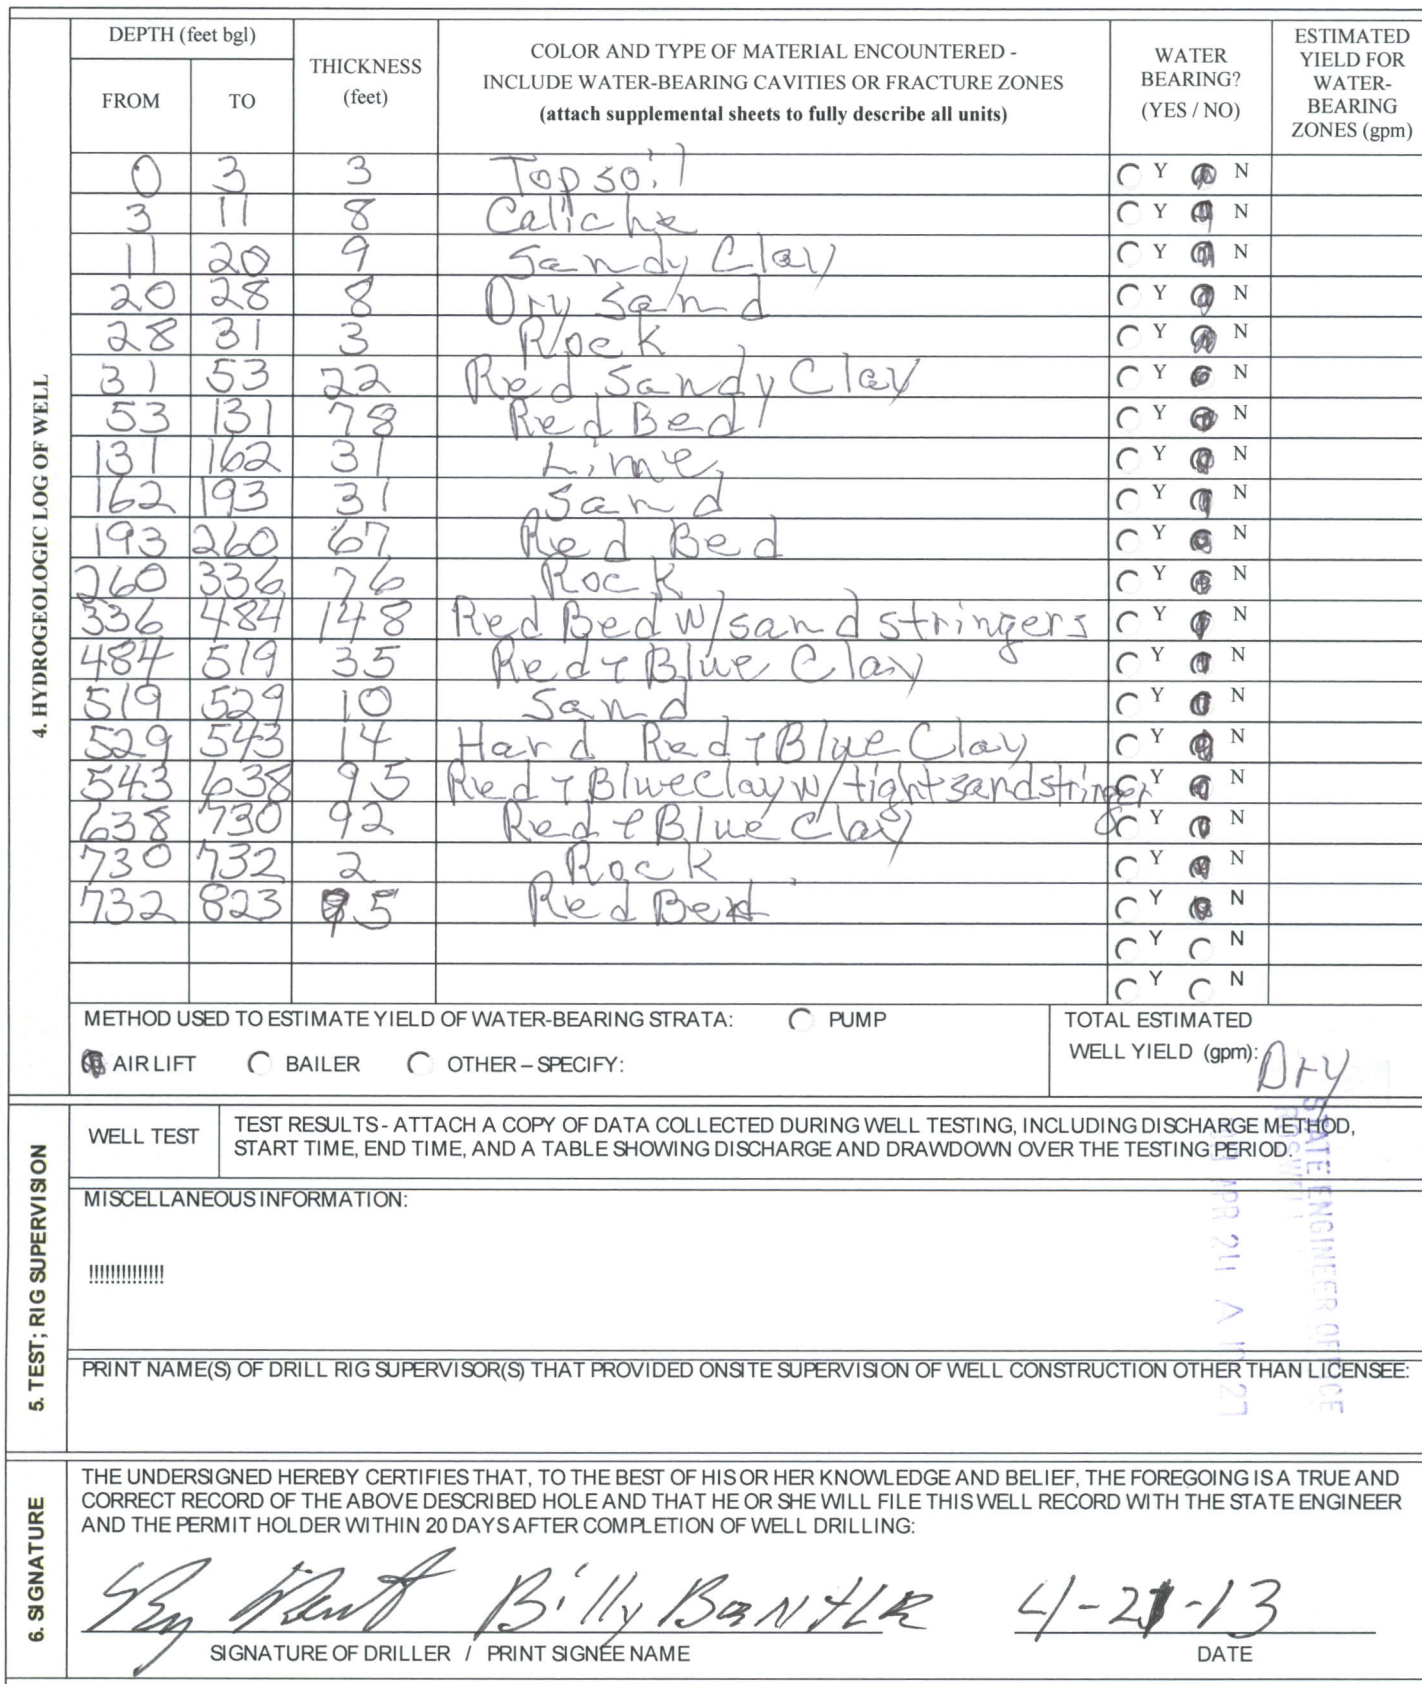 DEPTH (feet bgl) THICKNESS (feet) COLOR AND TYPE OF MATERIAL ENCOUNTERED - INCLUDE WATER-BEARING CAVITIES OR FRACTURE ZONES (attach supplemental sheets to fully describe all units) WATER BEARING? (YES / NO) ESTIMATED YIELD FOR WATER-BEARING ZONES (gpm)
FROM TO
4. HYDROGEOLOGIC LOG OF WELL
0 3 3 Topsoil Y N
3 11 8 Caliche Y N
11 20 9 Sandy Clay Y N
20 28 8 Dry Sand Y N
28 31 3 Rock Y N
31 53 22 Red Sandy Clay Y N
53 131 78 Red Bed Y N
131 162 31 Lime Y N
162 193 31 Sand Y N
193 260 67 Red Bed Y N
260 336 76 Rock Y N
336 484 148 Red Bed w/sand stringers Y N
484 519 35 Red + Blue Clay Y N
519 529 10 Sand Y N
529 543 14 Hard Red + Blue Clay Y N
543 638 95 Red + Blue Clay w/tight sand stringer Y N
638 730 92 Red + Blue Clay Y N
730 732 2 Rock Y N
732 823 95 Red Bed Y N
Y N
Y N
METHOD USED TO ESTIMATE YIELD OF WATER-BEARING STRATA: PUMP
AIR LIFT BAILER OTHER – SPECIFY:
TOTAL ESTIMATED
WELL YIELD (gpm): Dry
5. TEST; RIG SUPERVISION
WELL TEST
TEST RESULTS - ATTACH A COPY OF DATA COLLECTED DURING WELL TESTING, INCLUDING DISCHARGE METHOD,
START TIME, END TIME, AND A TABLE SHOWING DISCHARGE AND DRAWDOWN OVER THE TESTING PERIOD.
MISCELLANEOUS INFORMATION:
!!!!!!!!!!!!!!!
STATE ENGINEER OFFICE
APR 24 A
PRINT NAME(S) OF DRILL RIG SUPERVISOR(S) THAT PROVIDED ONSITE SUPERVISION OF WELL CONSTRUCTION OTHER THAN LICENSEE:
6. SIGNATURE
THE UNDERSIGNED HEREBY CERTIFIES THAT, TO THE BEST OF HIS OR HER KNOWLEDGE AND BELIEF, THE FOREGOING IS A TRUE AND
CORRECT RECORD OF THE ABOVE DESCRIBED HOLE AND THAT HE OR SHE WILL FILE THIS WELL RECORD WITH THE STATE ENGINEER
AND THE PERMIT HOLDER WITHIN 20 DAYS AFTER COMPLETION OF WELL DRILLING:
Billy 4-21-13
SIGNATURE OF DRILLER / PRINT SIGNEE NAME DATE